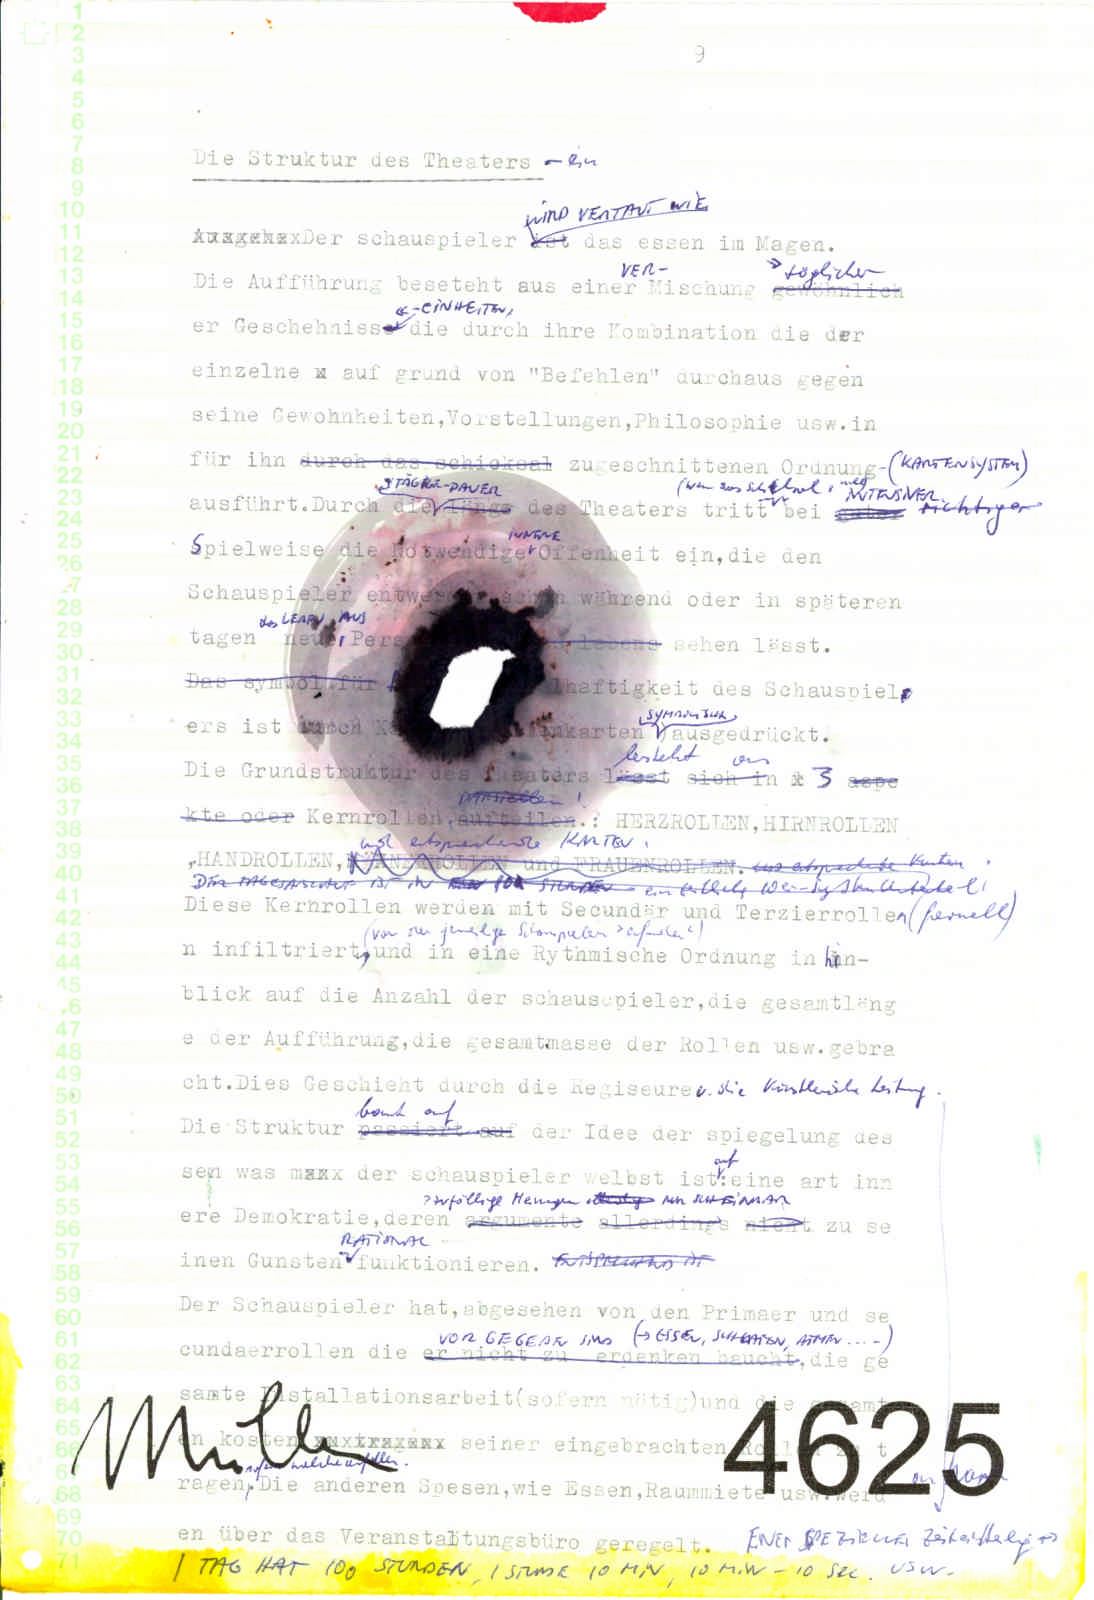 1
2
3
4
5
6
7
8
9
10
11
12
13
14
15
16
17
18
19
20
21
22
23
24
25
26
27
28
29
30
31
32
33
34
35
36
37
38
39
40
41
42
43
44
45
46
47
48
49
50
51
52
53
54
55
56
57
58
59
60
61
62
63
64
65
66
67
68
69
70
71
9
Die Struktur des Theaters - ein
WIRD VERTAUT WIE
Der schauspieler ist das essen im Magen.
VER- täglicher
Die Aufführung besteht aus einer Mischung gewöhnlich
-EINHEITEN,
er Geschehnisse die durch ihre Kombination die der
einzelne x auf grund von "Befehlen" durchaus gegen
seine Gewohnheiten,Vorstellungen,Philosophie usw.in
für ihn durch das schicksal zugeschnittenen Ordnung-(KARTENSYSTEM)
9TÄGIGE-DAUER
INTENSIVER
ausführt.Durch die länge des Theaters tritt bei richtiger
INNERE
Spielweise die Notwendige Offenheit ein,die den
Schauspieler entweder schon während oder in späteren
das LEBEN AUS
tagen neue, Pers lebens sehen lässt.
Das symbol für haftigkeit des Schauspiel
SYMBOLISCH
ers ist durch karten ausgedrückt.
besteht aus
Die Grundstruktur des Theaters lässt sich in x 3 aspe
DARSTELLEN!
kte oder Kernrollen,aufteilen.: HERZROLLEN,HIRNROLLEN
und entsprechende KARTEN.
,HANDROLLEN, MÄNNERROLLEN und FRAUENROLLEN. und entsprechende Karten.
DER TAGESABLAUF IST IN 100 STUNDEN
Diese Kernrollen werden mit Secundär und Terzierrollen
n infiltriert,und in eine Rytmische Ordnung in hin-
blick auf die Anzahl der schauscpieler,die gesamtläng
e der Aufführung,die gesamtmasse der Rollen usw.gebra
cht.Dies Geschieht durch die Regiseure u. die künstlerische Leitung.
baut auf
Die Struktur passiert auf der Idee der spiegelung des
auf
sen was maxx der schauspieler welbst ist:eine art inn
zufällige Meinungen NUR SCHEINBAR
ere Demokratie,deren argumente allerdings nicht zu se
RATIONAL
inen Gunsten funktionieren.
Der Schauspieler hat,abgesehen von den Primaer und se
VORGEGEBEN SIND (→ ESSEN, SCHLAFEN, ATMEN....-)
cundaerrollen die er nicht zu erdenken baucht,die ge
samte Installationsarbeit(sofern nötig)und die gesamt
en kosten seiner eingebrachten Rollen zu t
sofern welche anfallen.
ragen,Die anderen Spesen,wie Essen,Raummiete usw.werd
en über das Veranstaltungsbüro geregelt.
EINER SPEZIELLEN Zeiteinteilung →
1 TAG HAT 100 STUNDEN, 1 STUNDE 10 MIN, 10 MIN - 10 SEC. USW.
4625